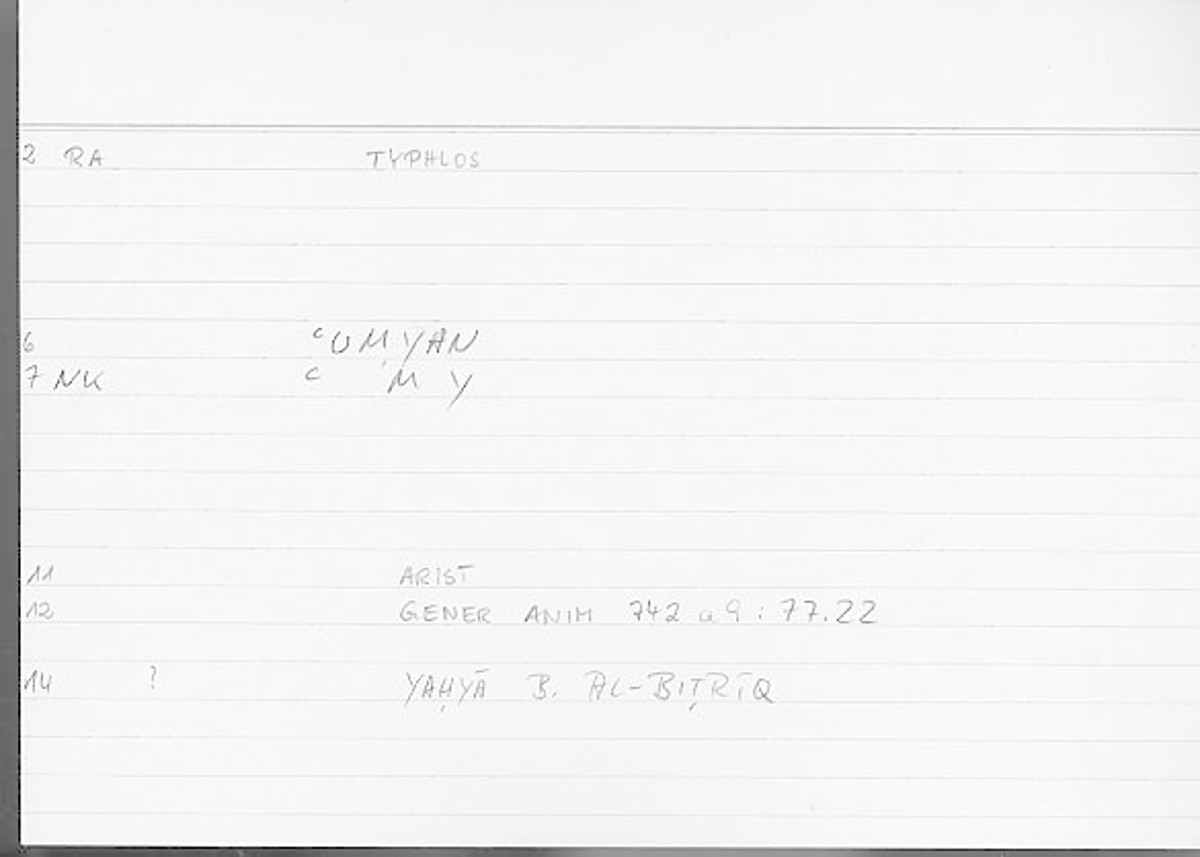 2 RA TYPHLOS
6 ʿUMYAN
7 NK ʿ M Y
11 ARIST
12 GENER ANIM 742 a 9 : 77.22
14 ? YAḤYĀ B. AL-BIṬRĪQ